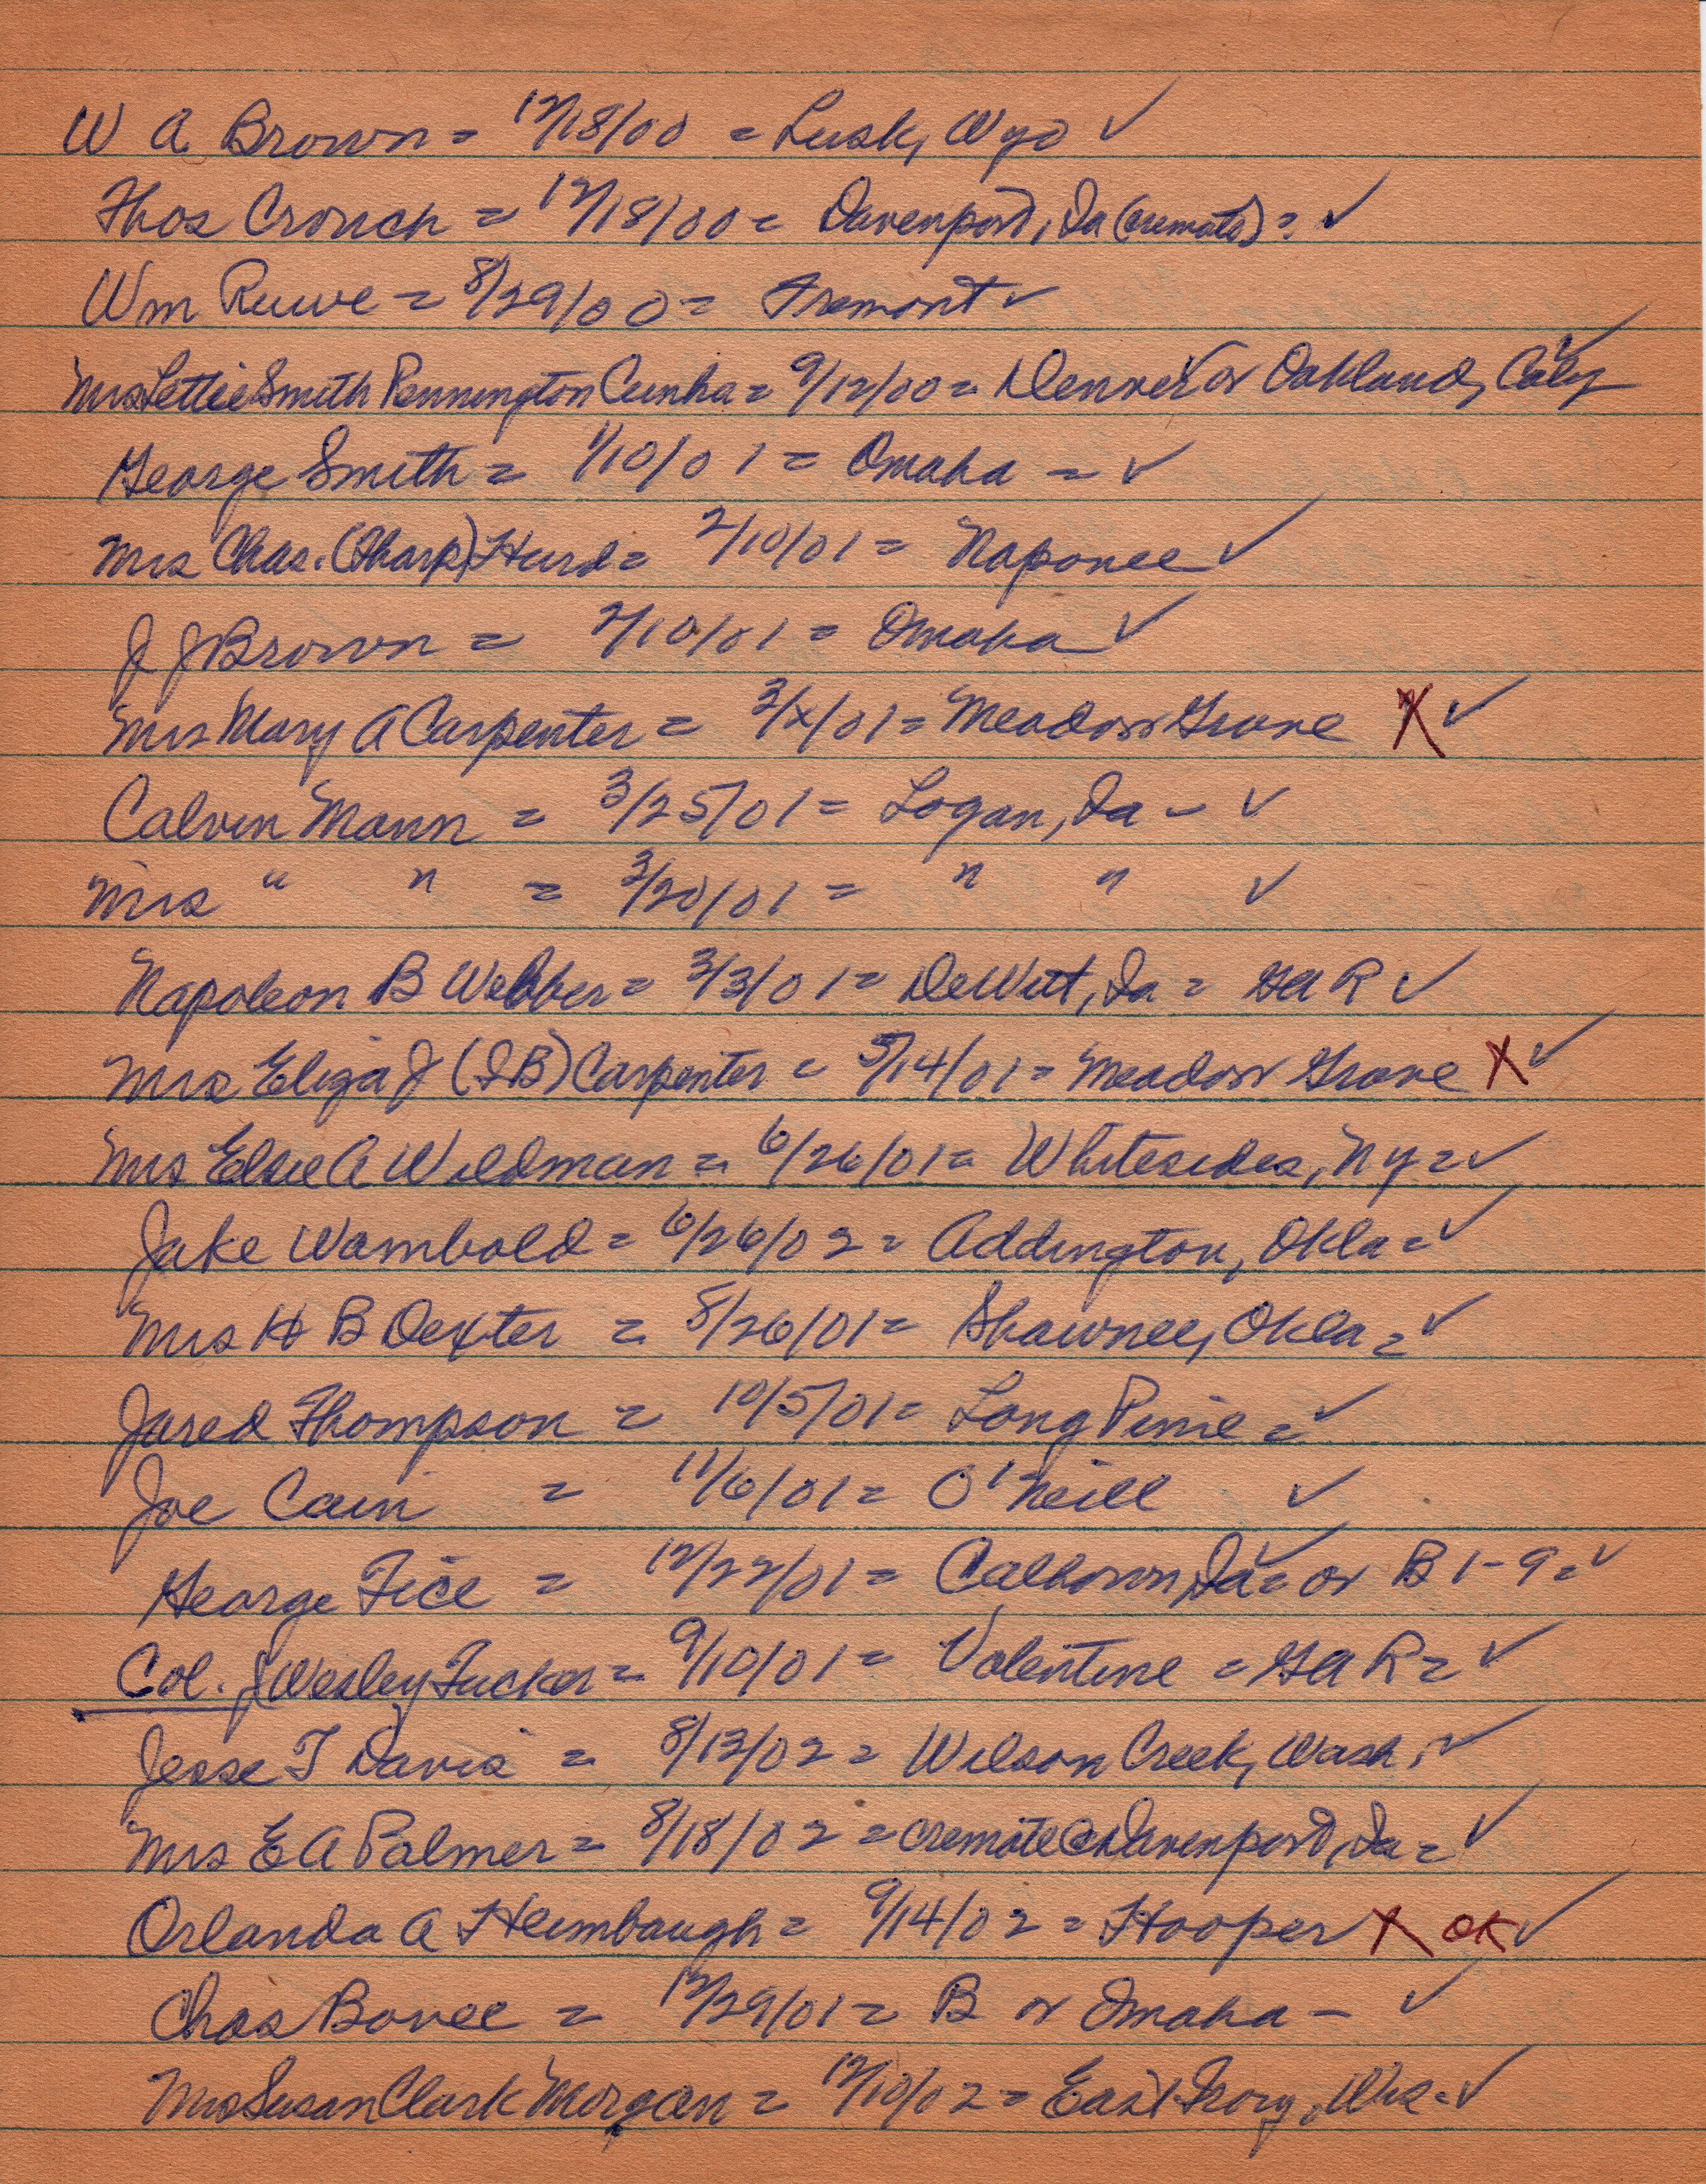 W A Brown = 12/18/00 = Lusk, Wyo ✓
Thos Crouch = 12/18/00 = Davenport, Ia (cremate) = ✓
Wm Ruwe = 8/29/00 = Fremont ✓
Mrs Lettie Smith Pennington Cunha = 9/12/00 = Denver ✓ or Oakland, Calif ✓
George Smith = 1/10/01 = Omaha = ✓
Mrs Chas. (Tharp) Hurd = 2/10/01 = Naponee ✓
J J Brown = 2/10/01 = Omaha ✓
Mrs Mary A Carpenter = 3/x/01 = Meadow Grove X ✓
Calvin Mann = 3/25/01 = Logan, Ia - ✓
Mrs " " = 3/20/01 = " " ✓
Napoleon B Webber = 3/3/01 = DeWitt, Ia = GAR ✓
Mrs Eliza J (IB) Carpenter = 5/14/01 = Meadow Grove X ✓
Mrs Elsie A Wildman = 6/26/01 = Whitesides, Ny = ✓
Jake Wambold = 6/26/02 = Addington, Okla = ✓
Mrs H B Dexter = 8/26/01 = Shawnee, Okla = ✓
Jared Thompson = 10/5/01 = Long Pine = ✓
Joe Cain = 11/6/01 = O'Neill ✓
George Fice = 12/22/01 = Calhoun, Ia ✓ = or B 1-9 = ✓
Col. J Wesley Tucker = 9/10/01 = Valentine = GAR = ✓
Jesse T Davis = 8/13/02 = Wilson Creek, Wash. ✓
Mrs E A Palmer = 8/18/02 = cremate @ Davenport, Ia = ✓
Orlanda A Heimbaugh = 9/14/02 = Hooper X OK ✓
Chas Bovee = 12/29/01 = B or Omaha - ✓
Mrs Susan Clark Morgan = 12/10/02 = East Troy, Wis = ✓